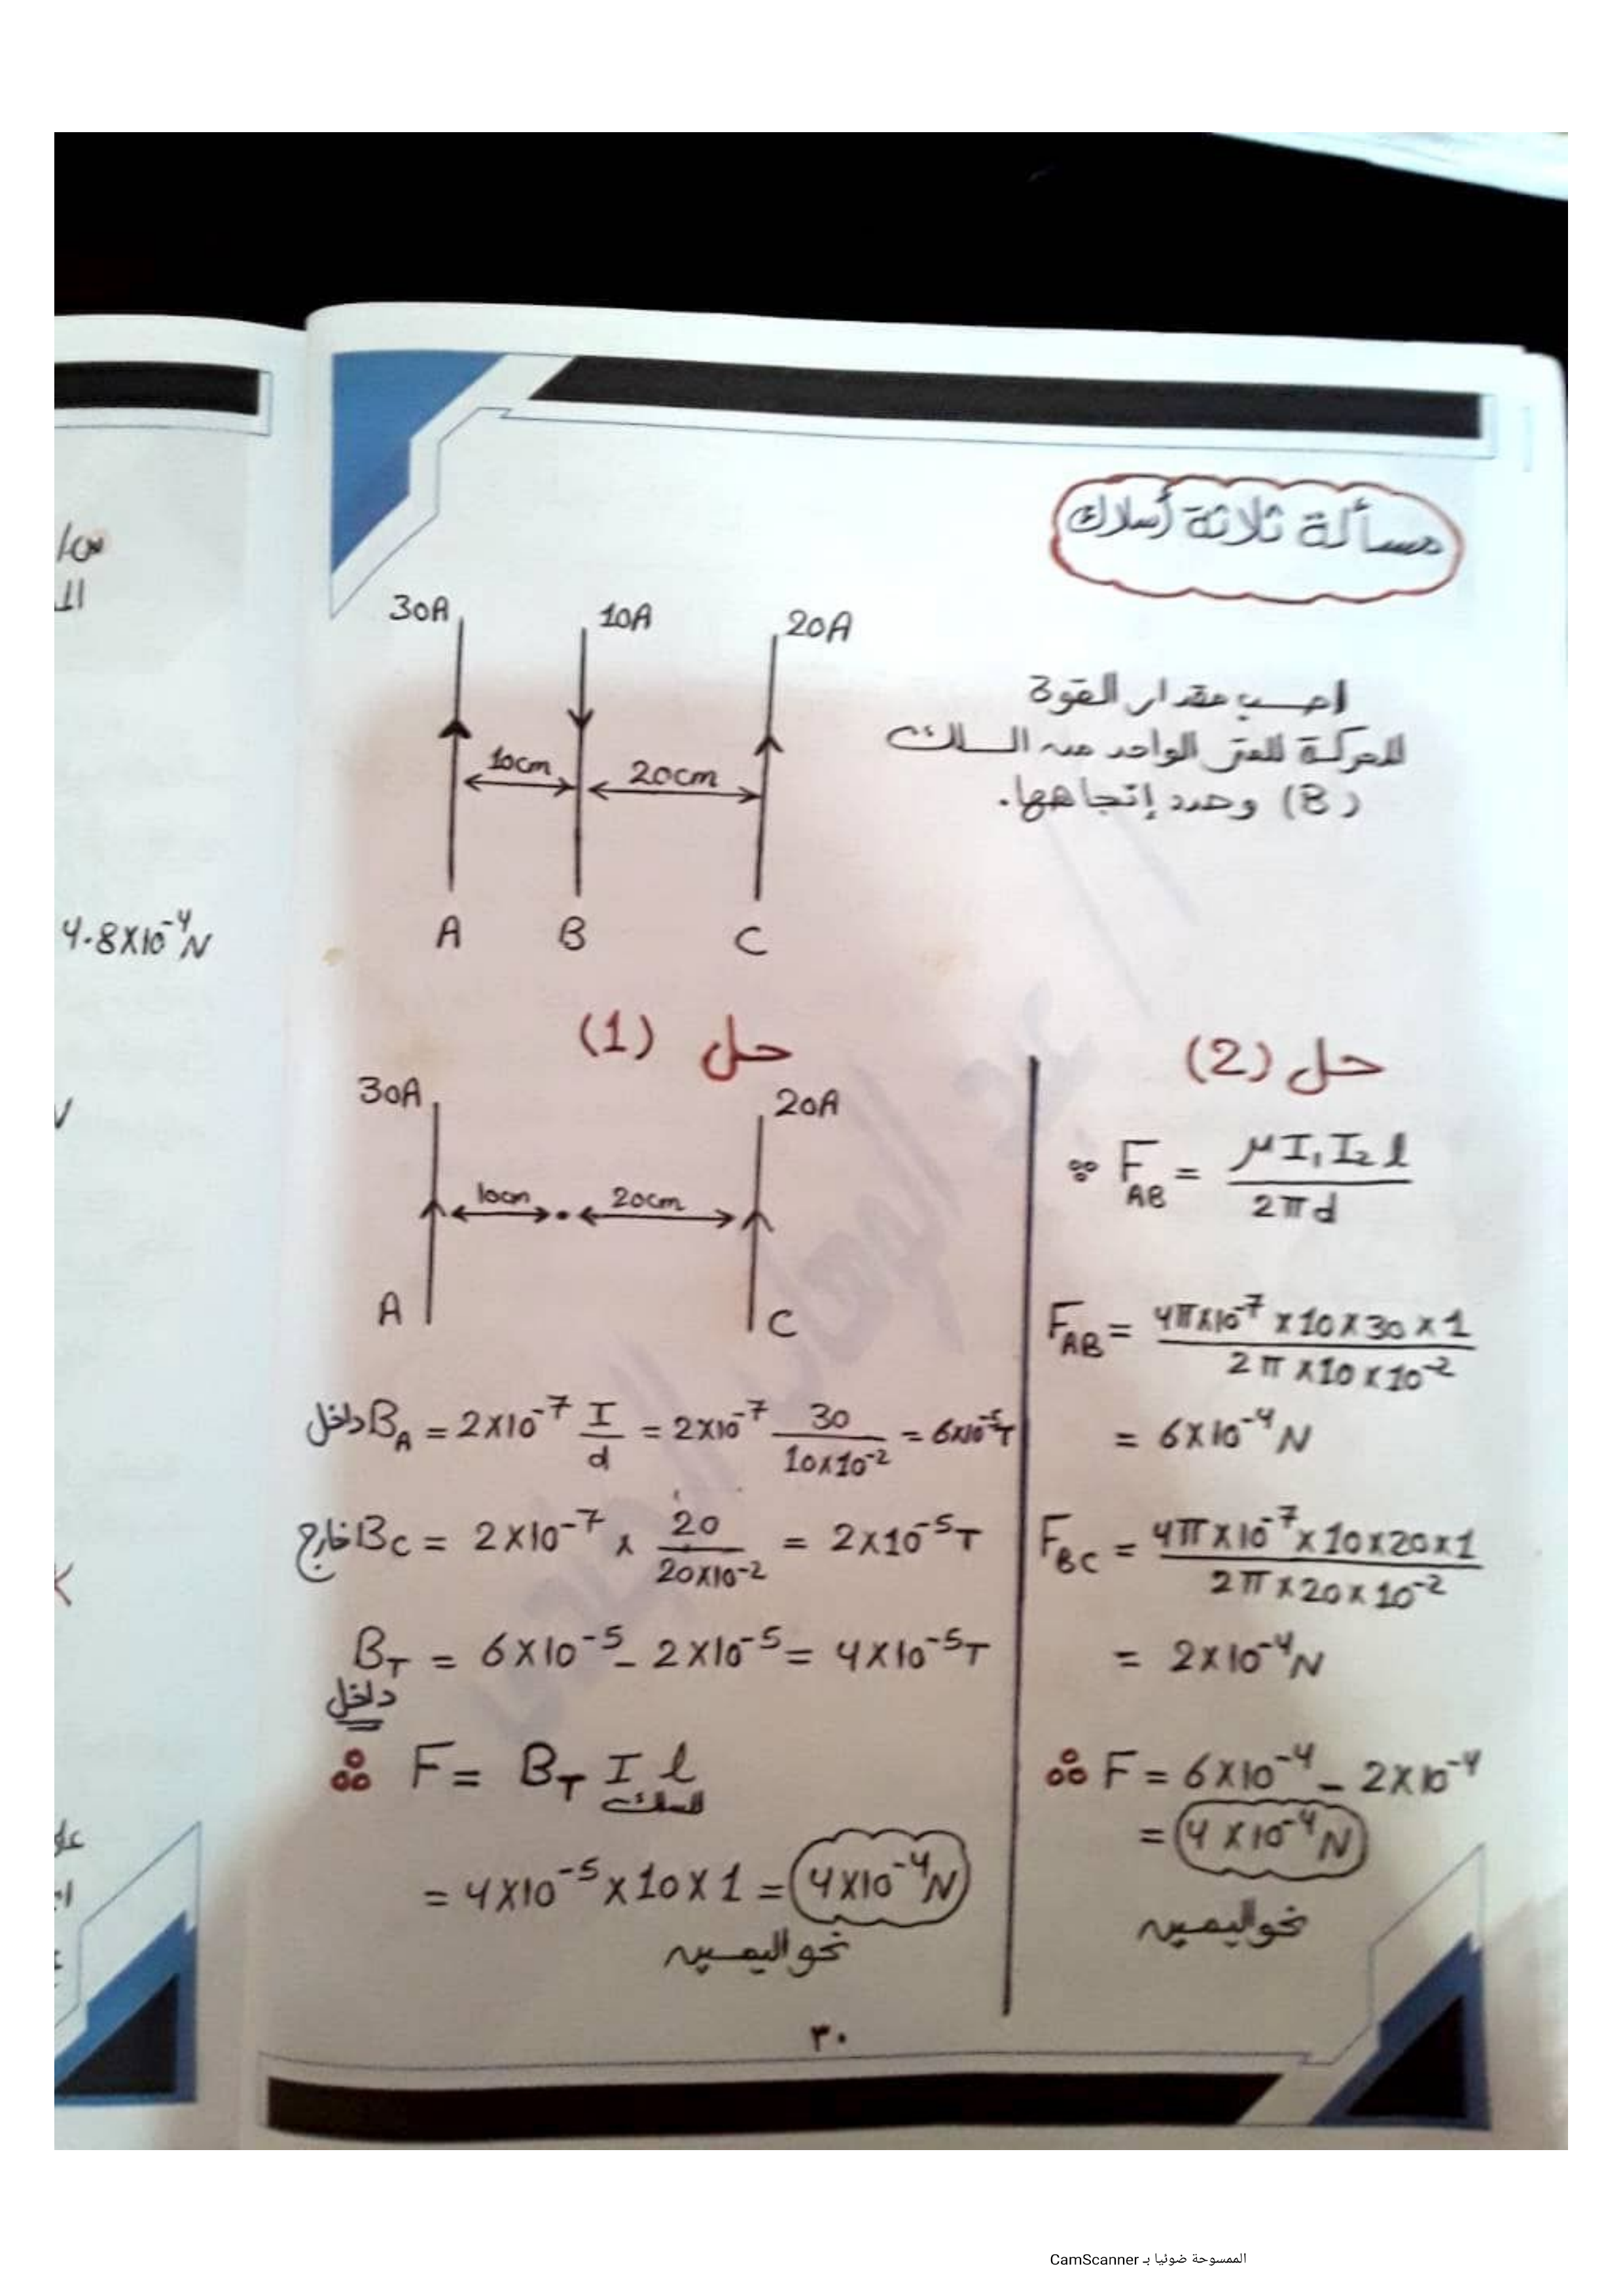 مسألة ثلاثة أسلاك
احسب مقدار القوة
المحركة للمتر الواحد من السلك
(B) وحدد إتجاهها.
30A 10A 20A
10cm 20cm
A B C
حل (1)
30A 20A
10cm 20cm
A C
داخل B_A = 2×10^-7 I/d = 2×10^-7 30/(10×10^-2) = 6×10^-5 T
خارج B_C = 2×10^-7 × 20/(20×10^-2) = 2×10^-5 T
B_T = 6×10^-5 - 2×10^-5 = 4×10^-5 T
داخل
∴ F = B_T I l
للسلك
= 4×10^-5 × 10 × 1 = 4×10^-4 N
نحو اليمين
حل (2)
∵ F_AB = μ I₁ I₂ l / 2πd
F_AB = 4π×10^-7 × 10 × 30 × 1 / 2π × 10 × 10^-2
= 6×10^-4 N
F_BC = 4π×10^-7 × 10 × 20 × 1 / 2π × 20 × 10^-2
= 2×10^-4 N
∴ F = 6×10^-4 - 2×10^-4
= 4×10^-4 N
نحو اليمين
٣٠
4.8×10^-4 N
الممسوحة ضوئيا بـ CamScanner